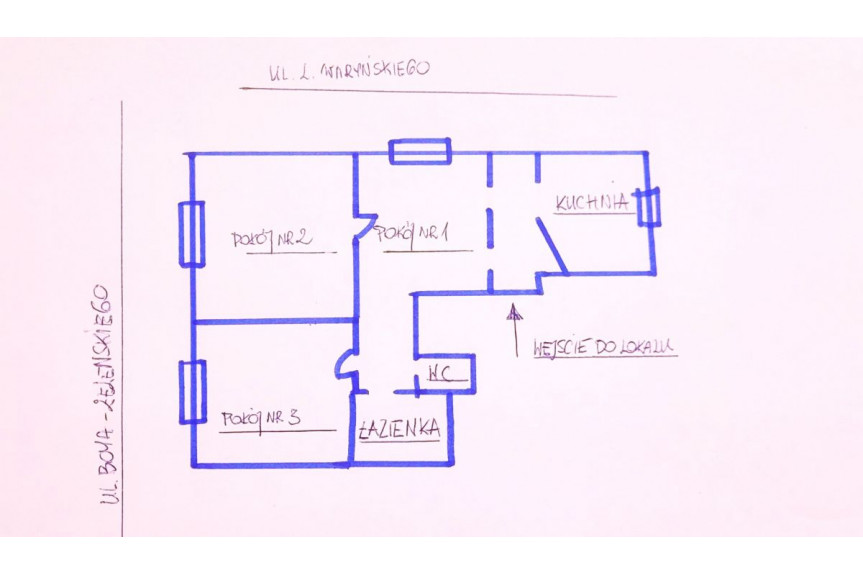 UL. L. WARYŃSKIEGO
KUCHNIA
POKÓJ NR 2
POKÓJ NR 1
WEJŚCIE DO LOKALU
WC
POKÓJ NR 3
ŁAZIENKA
UL. BOYA-ŻELEŃSKIEGO